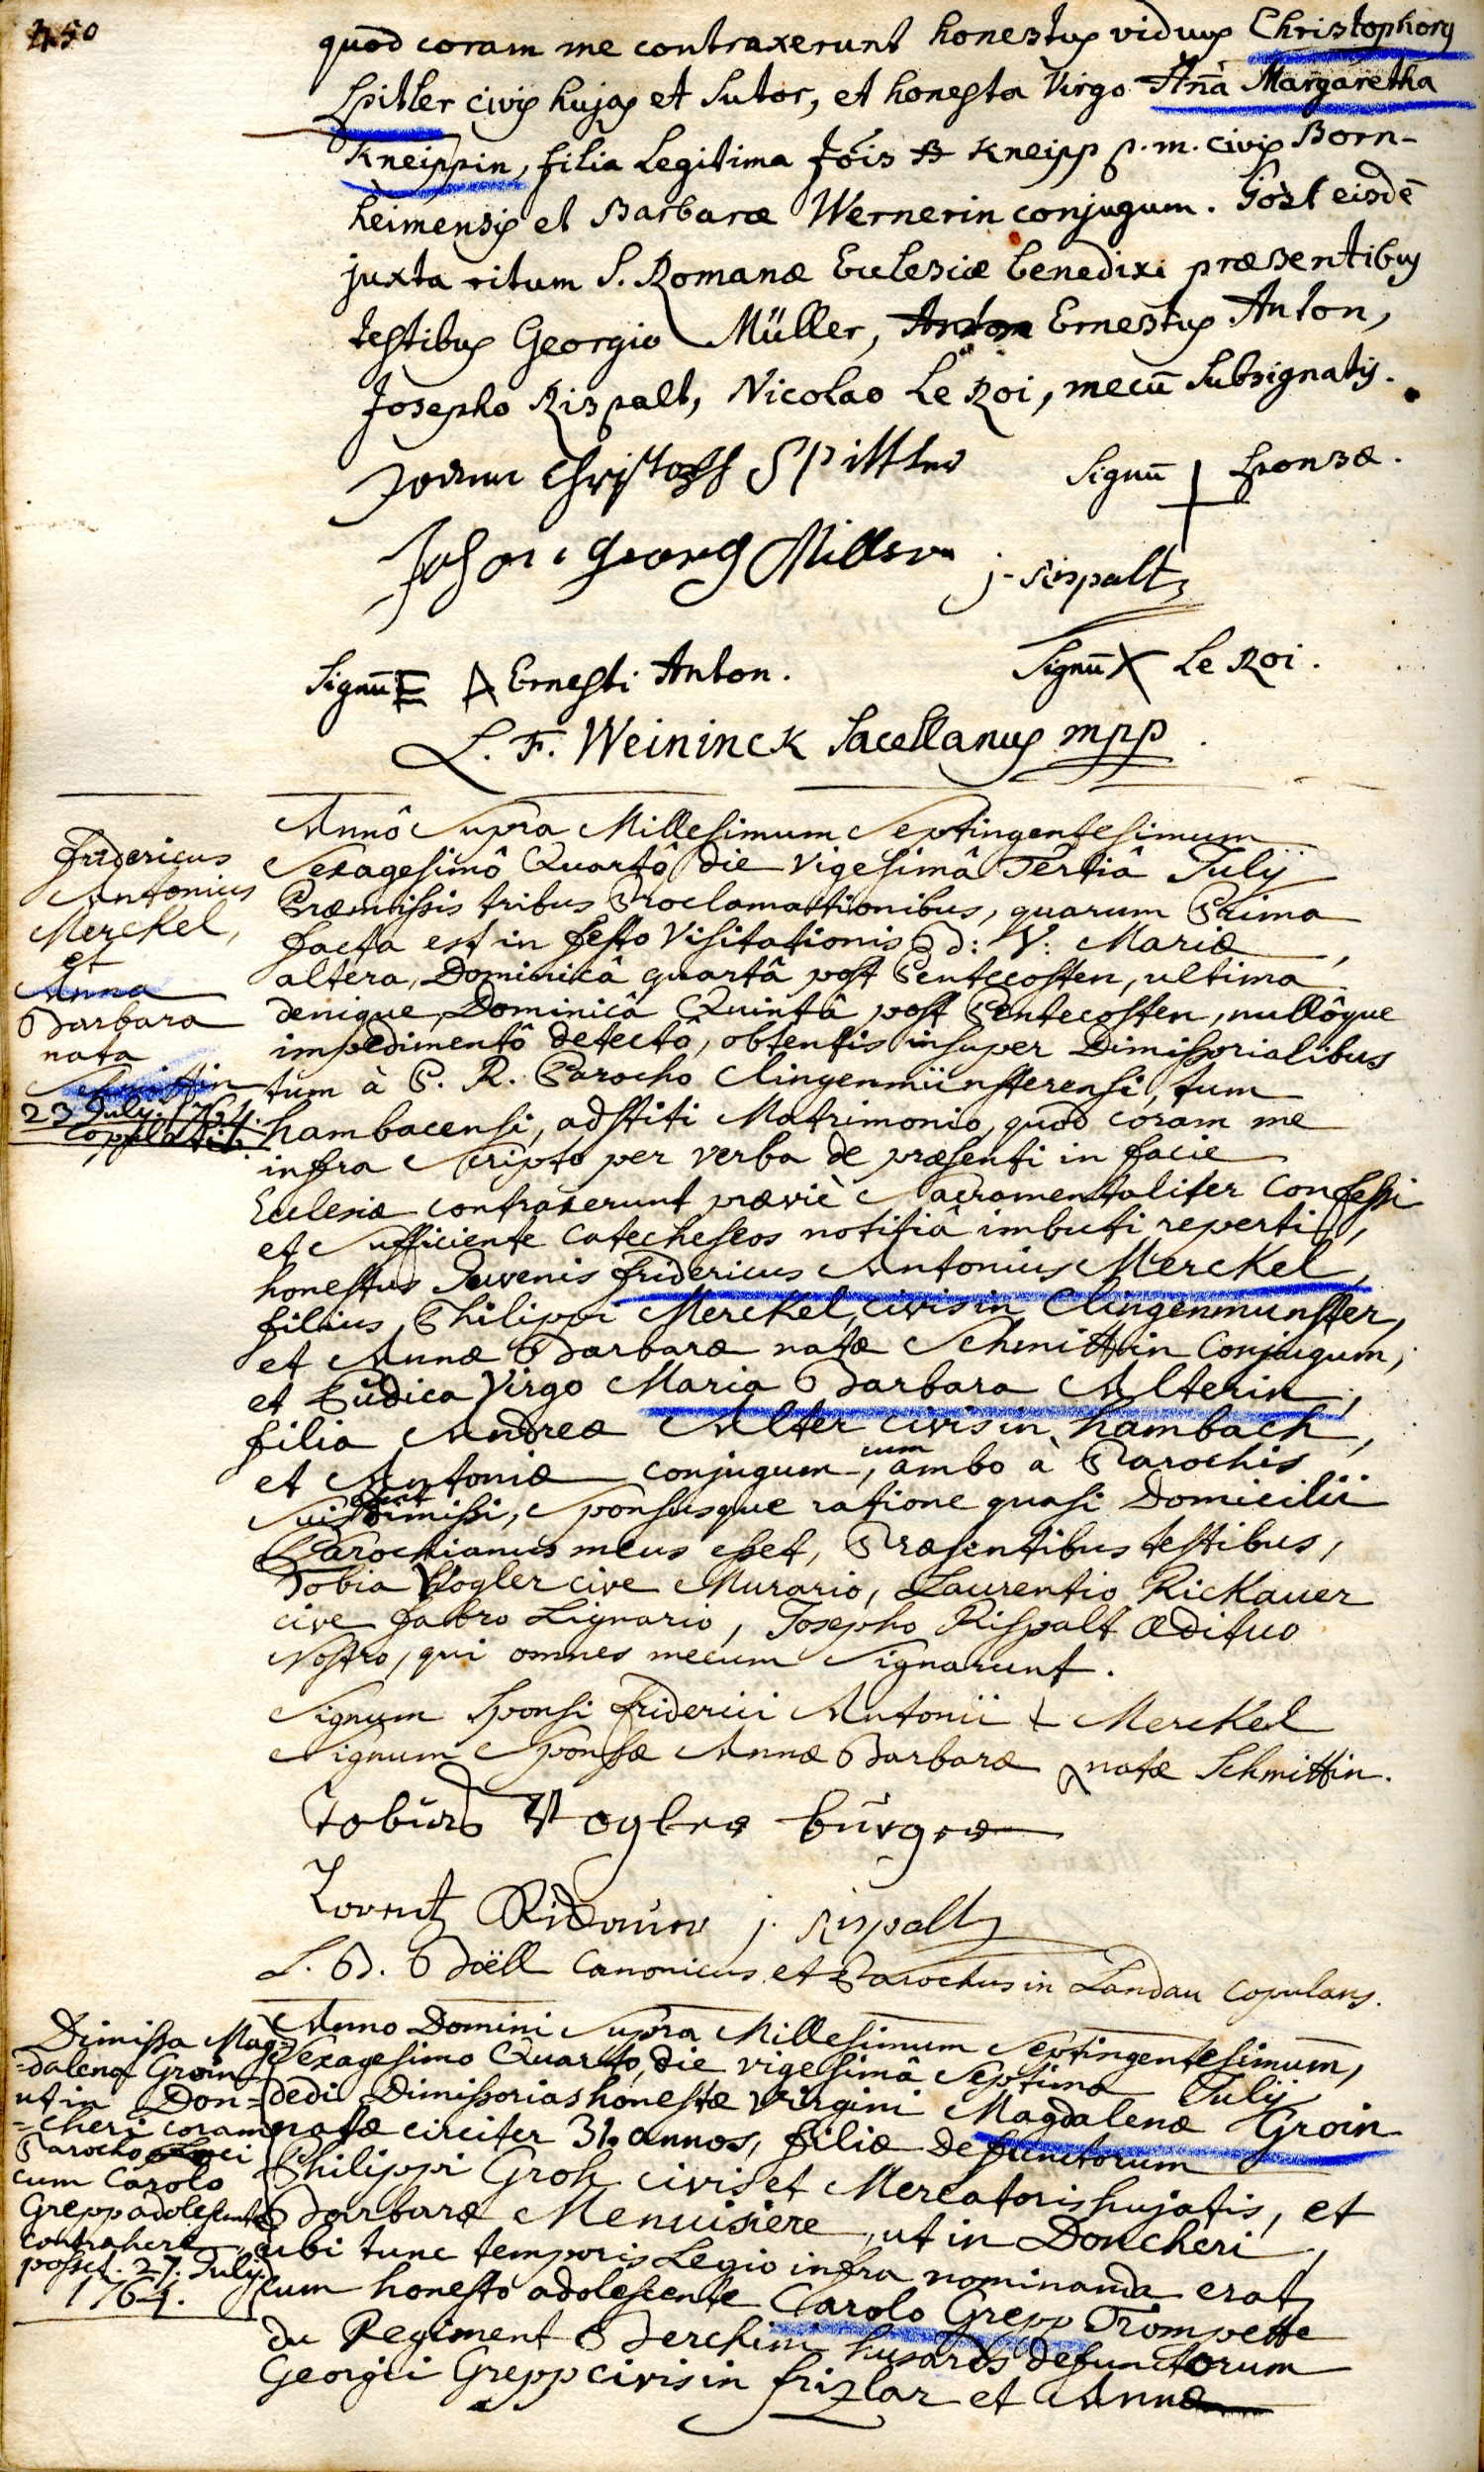 450
quod coram me contraxerunt honestus viduus Christophorus
Spitler civis hujas et Sutor, et honesta Virgo Aña Margaretha
Kneippin, filia Legitima Jois Kneipp p. m. civis Born-
heimensis et Barbaræ Wernerin conjugum. Post eisdē
juxta ritum S. Romanæ Ecclesiæ benedixi præsentibus
testibus Georgio Müller, Ernestus Anton,
Josepho Rispalt, Nicolao Le Roi, mecū Subsignatis.
Johann Christoph Spittler Signū Sponsæ.
Johan Georg Miller j. rispalt
Signū E A Ernesti Anton. Signū X Le Roi.
L. F. Weininck Sacellanus mpp
Fridericus
Antonius
Merckel,
et
Anna
Barbara
nata
Schmittin
23 July. 1764.
copulati.
Annô Supra Millesimum Septingentesimum
Sexagesimô Quartô die Vigesimâ Tertiâ Julij
Præmissis tribus Proclamationibus, quarum Prima
facta est in festo Visitationis B: V: Mariæ,
altera, Dominicâ quartâ post Pentecosten, ultima
denique, Dominicâ Quintâ post Pentecosten, nullôque
impedimentô detectô, obtentis insuper Dimissorialibus
tum à P. R. Parocho Clingenmünsterensi, tum
hambacensi, adstiti Matrimonio, quod coram me
infra Scripto per verba de præsenti in facie
Ecclesiæ contraxerunt præviè Sacramentaliter Confessi
et Sufficiente Catecheseos notitiâ imbuti reperti,
honestus Juvenis fridericus Antonius Merckel,
filius Philippi Merckel, civis in Clingenmunster,
et Annæ Barbaræ natæ Schmittin Conjugum,
et Pudica Virgo Maria Barbara Alterin,
filia Andreæ Alter civis in hambach,
et Antoniæ conjugum, cum ambo à Parochis
Suis dimissi, Sponsusque ratione quasi Domicilii
Parochianus meus esset, Præsentibus testibus,
Tobia Vogler cive Murario, Laurentio Rickauer
cive fabro Lignario, Josepho Rispalt Ædituo
Nostro, qui omnes mecum Signarunt.
Signum Sponsi Friderici Antonii + Merckel
Signum Sponsæ Annæ Barbaræ natæ Schmittin.
Tobias Vogler burger
Lorentz j. rispalt
L. B. Boëll Canonicus et Parochus in Landau Copulans.
Dimissa Mag-
=dalena Groin
ut in Don=
=cheri coram
Parocho Loci
cum Carolo
Grepp adolescente
contrahere
posset. 27. July
1764.
Anno Domini Supra Millesimum Septingentesimum,
Sexagesimo Quarto, die vigesimâ Septima Julij
dedi Dimissorias honestæ Virgini Magdalenæ Groin
natæ circiter 31. annos, filiæ defunctorum
Philippi Groh civis et Mercatoris hujatis, et
Barbaræ Menuisiere, ut in Doncheri,
ubi tunc temporis Legio infra nominanda erat,
cum honesto adolescente Carolo Grepp Trompette
du Regiment Berchini husards defunctorum
Georgii Grepp civis in frizlar et Annæ